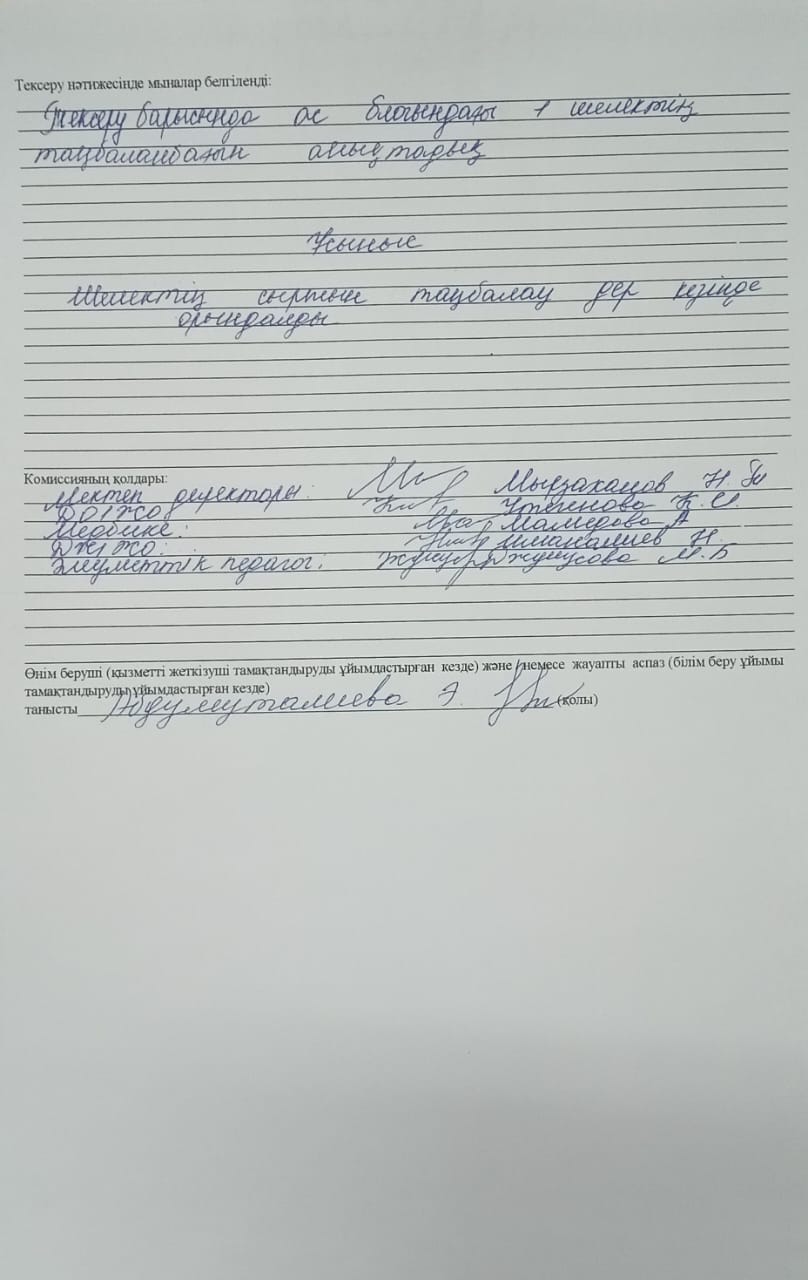 Тексеру нәтижесінде мыналар белгіленді:
Тексеру барысында ас блогындағы 1 шелектің
таңбаланбағын анықтадық
Ұсыныс
Шелектің сыртын таңбалау дер кезінде
орындалды
Комиссияның қолдары:
Мектеп директоры: Мырзаханов Н.
ДОІЖО Утегенова К.
Медбике: Мамедова А
ДЖІЖО: Н.
Әлеуметтік педагог: Джунусова М.Б
Өнім беруші (қызметті жеткізуші тамақтандыруды ұйымдастырған кезде) және /немесе жауапты аспаз (білім беру ұйымы
тамақтандыруды ұйымдастырған кезде)
танысты Абдумуталиева Э. (қолы)